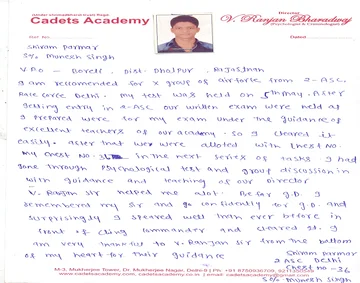 Cadets Academy
Director
V. Ranjan Bharadwaj
(Psychologist & Criminologist)
Ref. No.
Dated
Shriram Parmar
S/o Munesh Singh
V.P.O - Boreli, Dist. Dholpur, Rajasthan
I am recommended for X group of airforce from 2-ASC.
Race corse Delhi. My test was held on 5th may. After
getting entry in 2-ASC our written exam were held at
I prepared were for my exam under the guidance of
excellent teachers of our academy. So I cleared it
easily. After that wer were alloted with Chest No.
My chest No. In the next series of tasks I had
gone through Psychological test and group discussion in
with guidance and teaching of our Director
V. Ranjan sir helped me alot. Befor g.D. I
remembered my sir and go confidently for g.D. and
surprisingly I speared well than ever before in
front of Cling commander and cleared it. I
am very thankful to V. Ranjan sir from the bottom
of my heart for their guidance
Shriram Parmar
2 ASC Delhi
Chest no - 36
S/o Munesh Singh
M-3, Mukharjee Tower, Dr. Mukherjee Nagar, Delhi-9 | Ph: +91 8750936709,
www.cadetsacademy.com, www.cadetsacademy.co.in email: cadetsacademy@gmail.com